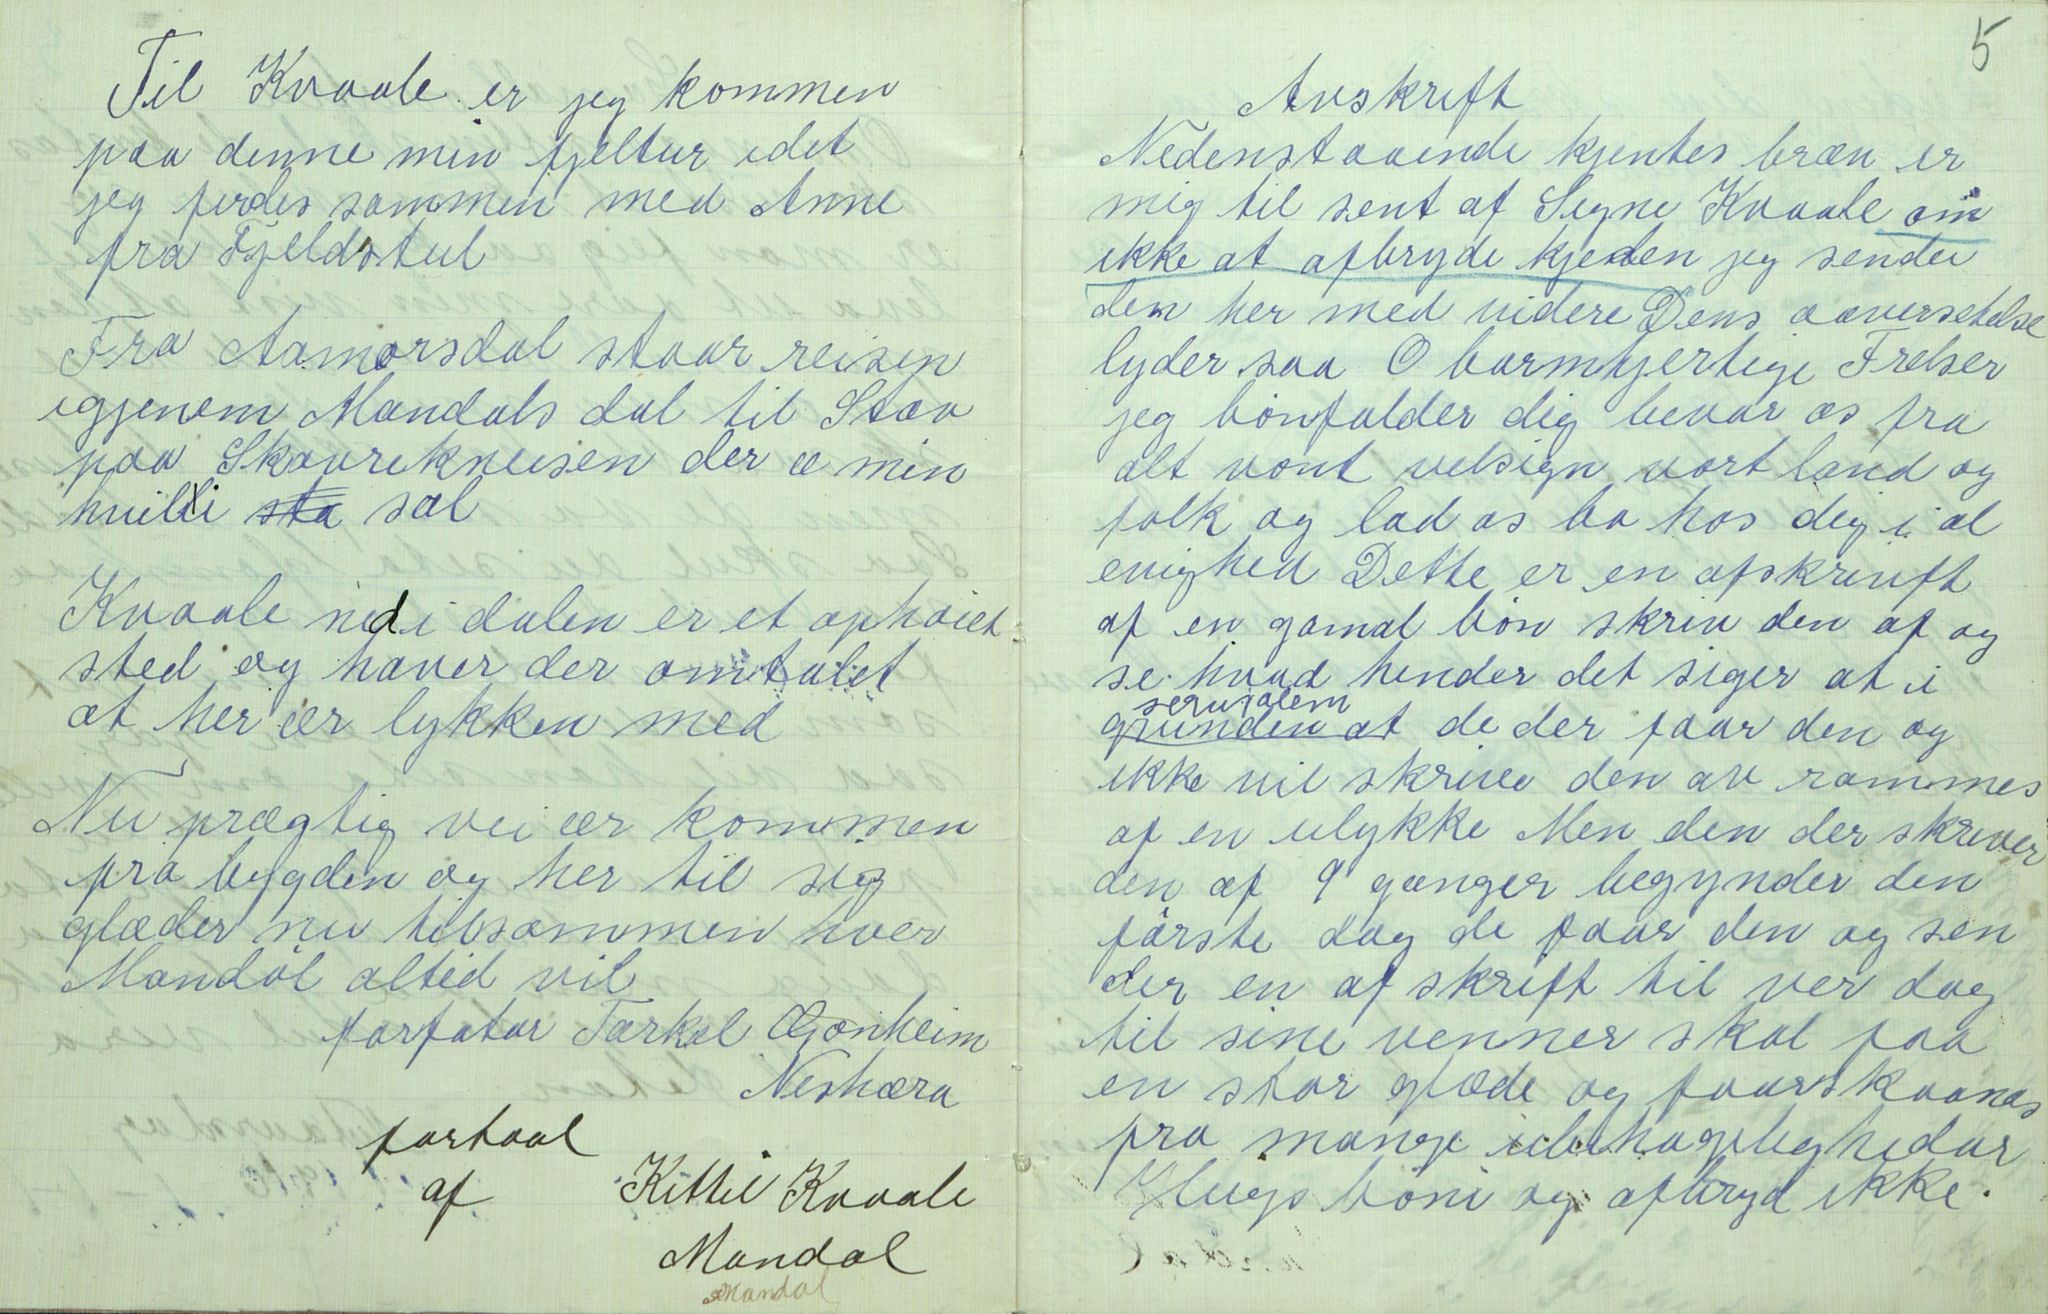 Til Kvaale er jeg kommen
paa denne min fjeltur idet
jeg ferdes sammen med Anne
fra Fjeldstul
Fra Aamorsdal staar reisen
igjenom Mandals dal til Stav
paa Skavrekneisen der æ min
huilli sta sæl
Kvaale ned i dalen er et ophøiet
sted og haver der omtalet
at her ær lykken med
Nu prægtig vei ær kommen
fra bygden og her til sig
glæder nu tilsammen hver
Mandøl altid vil
forfatar Tærkel Gonheim
Neshæra
fortaal
af Kittil Kvaale
Mandal
Mandal
5
Avskrift
Nedenstaaende kjentes bræn er
mig til sent af Signe Kvaale om
ikke at afbryde kjeden jeg sender
den her med videre Dens aaversetelse
lyder saa O barmhjertige Frelser
jeg bønfalder dig bevar os fra
alt vont velsign vort land og
folk og lad os bo hos dig i al
evighed Dette er en afskruft
af en gamal bøn skriv den af og
se hvad hender det siger at i
jerusalem
grunden at de der faar den og
ikke vil skrive den av rammes
af en ulykke Men den der skriver
den af 9 gænger begynder den
første dag de faar den og sen
der en af skrift til ver dag
til sine venner skal faa
en stor glæde og faarskaanes
fra mange ubehageligheder
Hugs bøni og afbryd ikke.